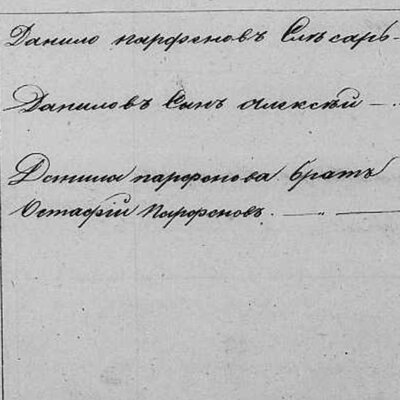 Данило парфеновъ Слѣсарь -
Даниловъ Сынъ Алексѣй — .
Данила парфенова братъ
Остафій Парфеновъ. — „ —